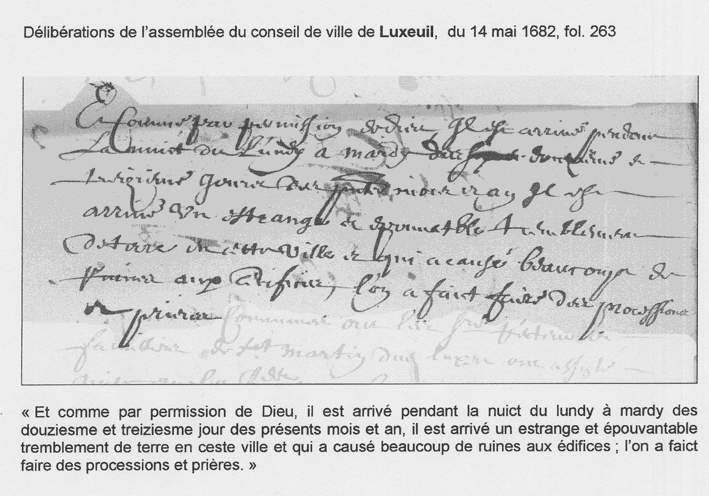 Délibérations de l'assemblée du conseil de ville de Luxeuil, du 14 mai 1682, fol. 263
Et Comme par permission de dieu Il est arrivé pendant
La nuict du Lundy a mardy des douziesme et
treiziesme jours des pnts mois et an Il est
arrivé Un estrange et epouvatable tremblement
de terre en cette Ville et qui a causé beaucoups de
Ruines aux Edifices, l'on a faict faire des processions
et prieres
« Et comme par permission de Dieu, il est arrivé pendant la nuict du lundy à mardy des
douziesme et treiziesme jour des présents mois et an, il est arrivé un estrange et épouvantable
tremblement de terre en ceste ville et qui a causé beaucoup de ruines aux édifices ; l'on a faict
faire des processions et prières. »